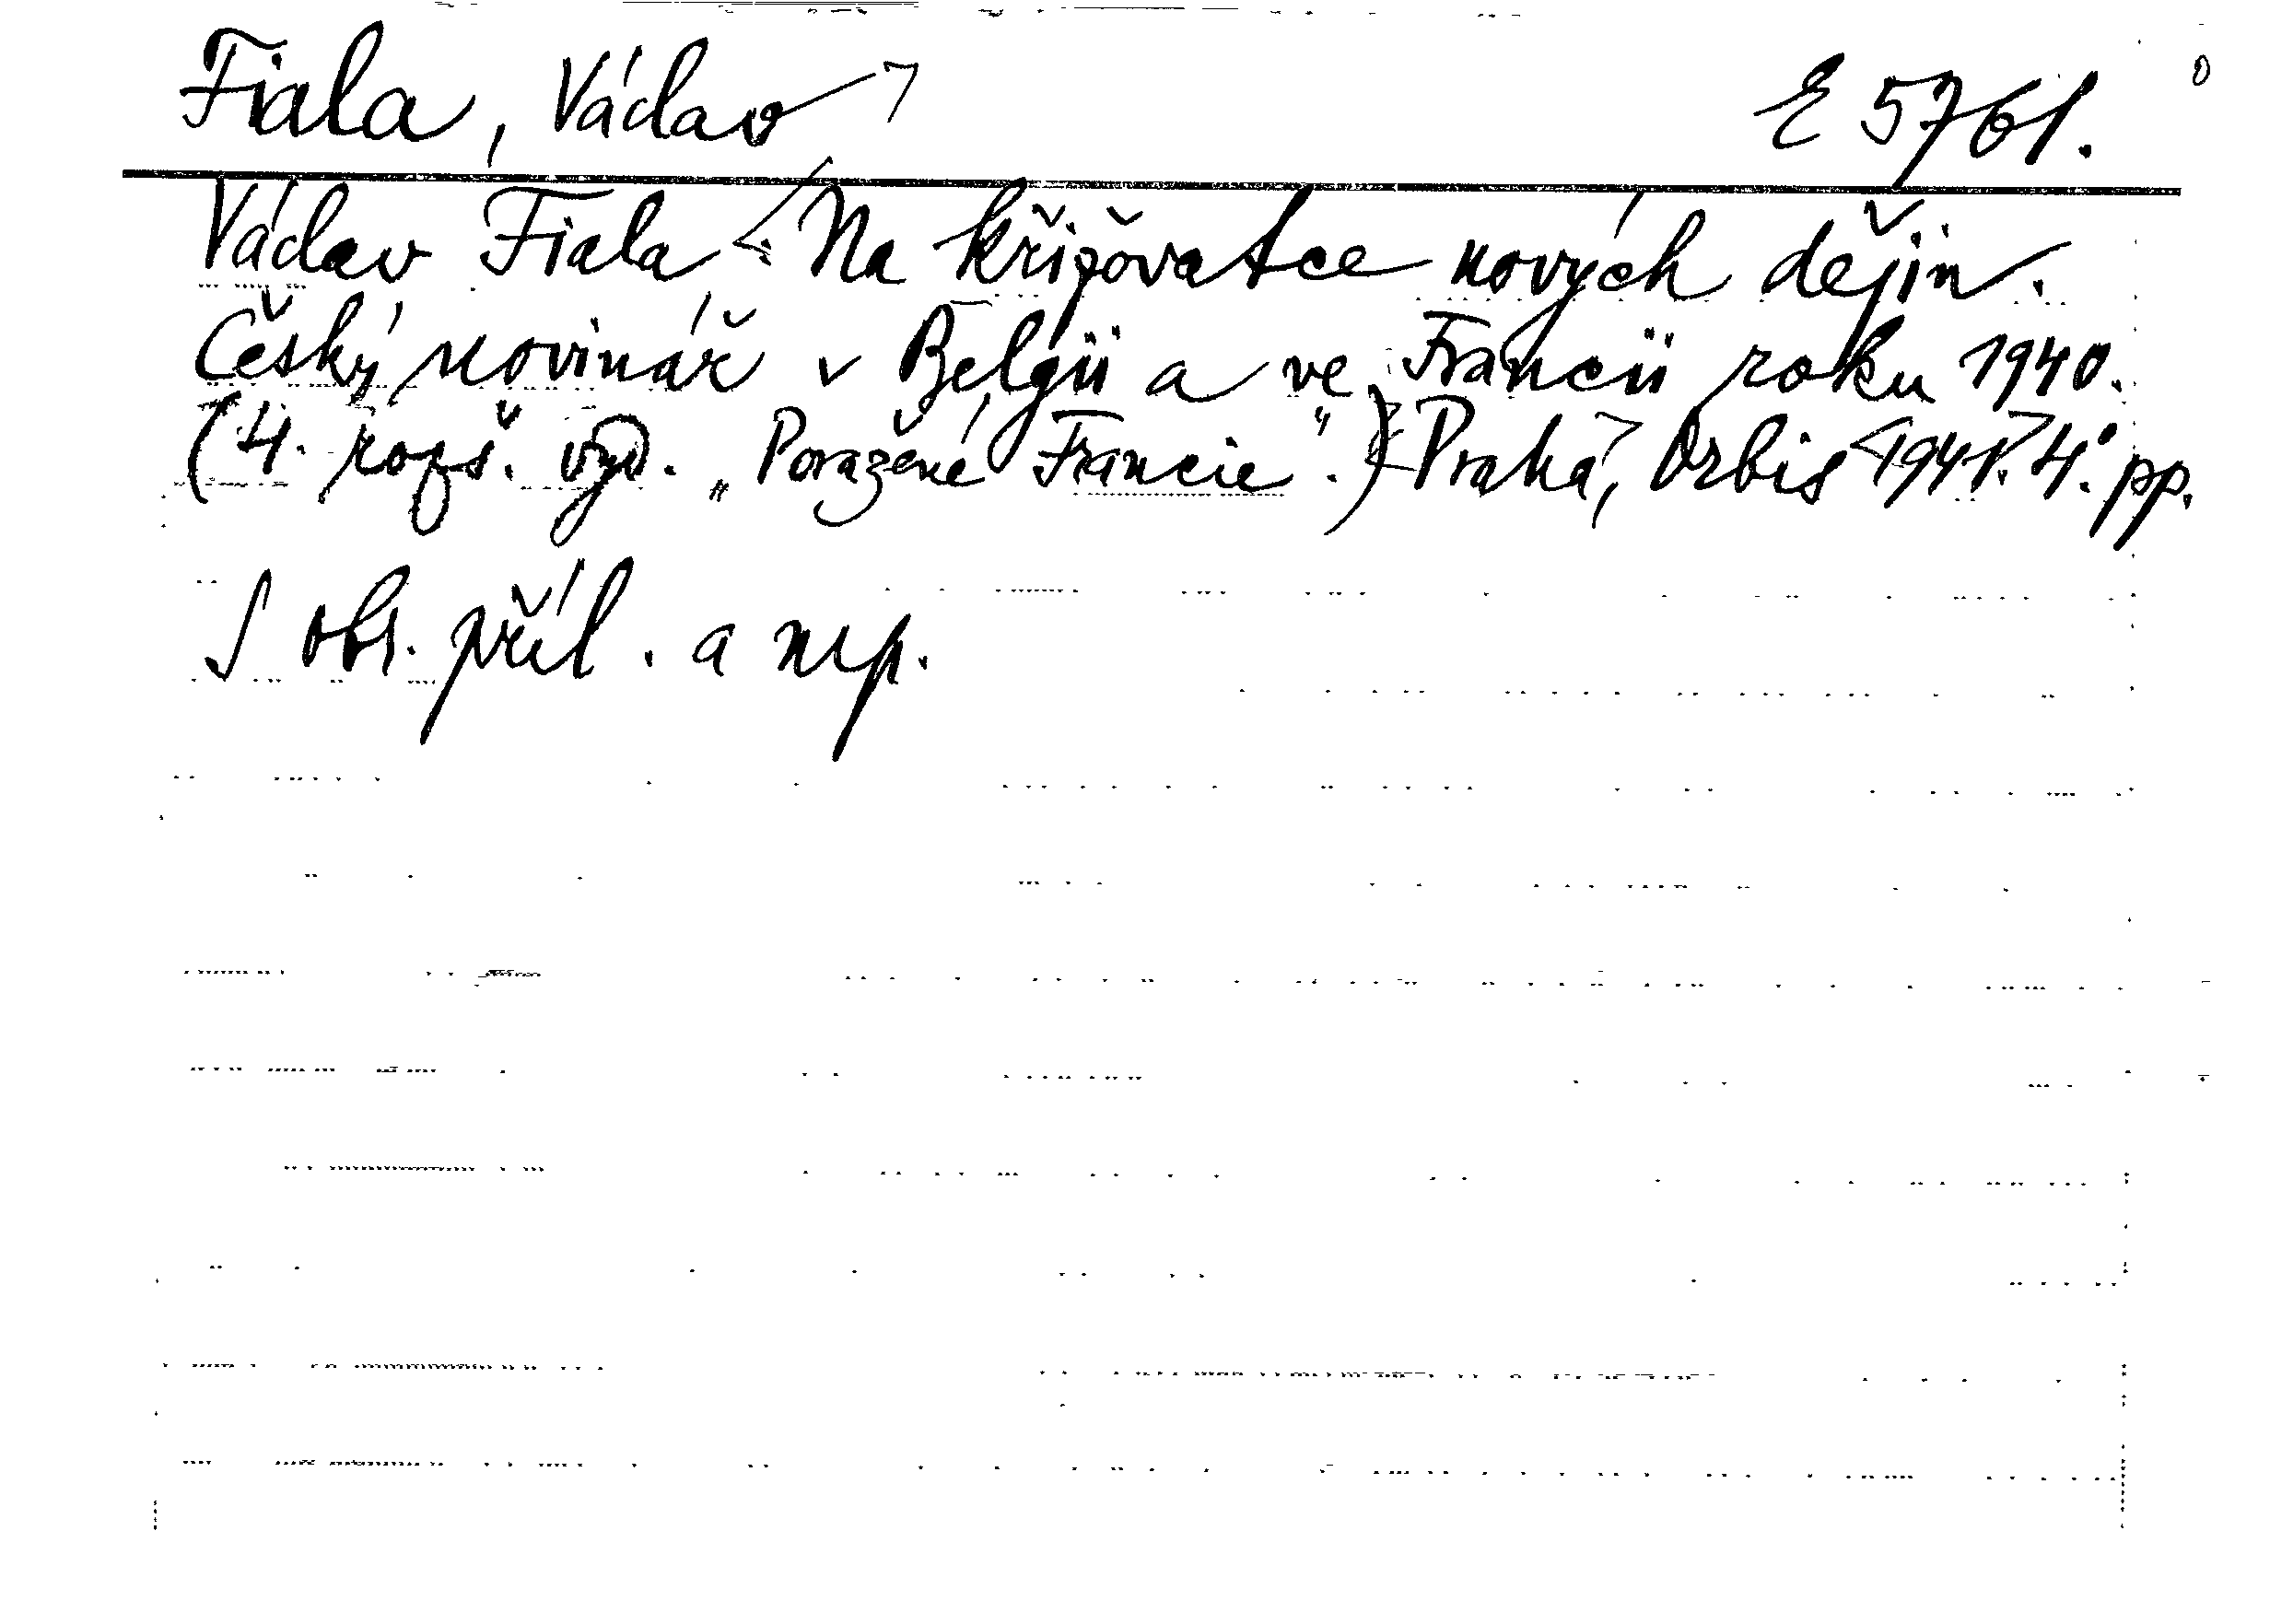 Fiala, Václav
E 5761.
Václav Fiala: Na křižovatce nových dějin.
Český novinář v Belgii a ve Francii roku 1940.
(4. rozš. vyd. „Poražené Francie".) Praha, Orbis 1941. 4°. pp.
S obr. příl. a mp.